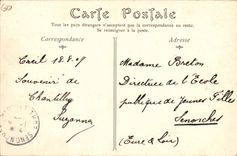 Carte Postale
Tous les pays étrangers n'acceptent pas la correspondance au recto.
Se renseigner à la poste.
Correspondance
Adresse
Creil 18.8.05
Souvenir de
Chantilly
Suzanne
Madame Breton
Directrice de l'Ecole
publique de Jeunes Filles
Senonches
(Eure & Loir)